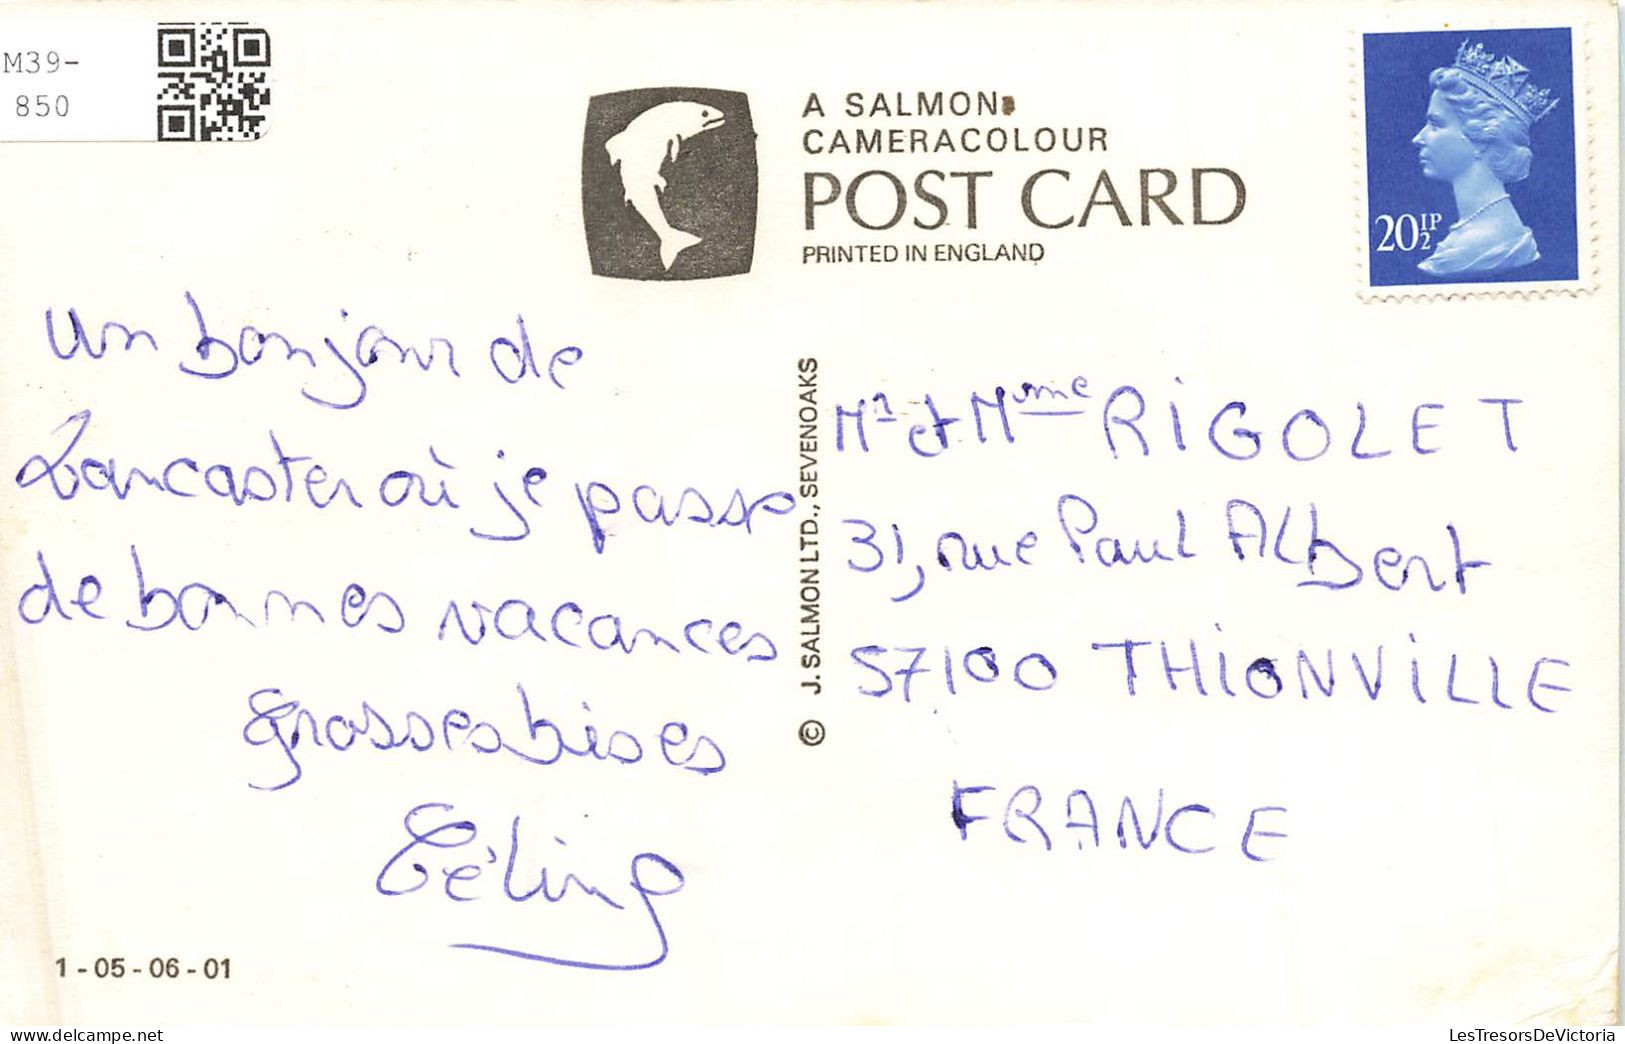 M39-
850
A SALMON
CAMERACOLOUR
POST CARD
PRINTED IN ENGLAND
20½P
Un bonjour de
Lancaster où je passe
de bonnes vacances
Grosses bises
Céline
1 - 05 - 06 - 01
© J. SALMON LTD., SEVENOAKS
Mr et Mme RIGOLET
31, rue Paul Albert
57100 THIONVILLE
FRANCE
LesTresorsDeVictoria